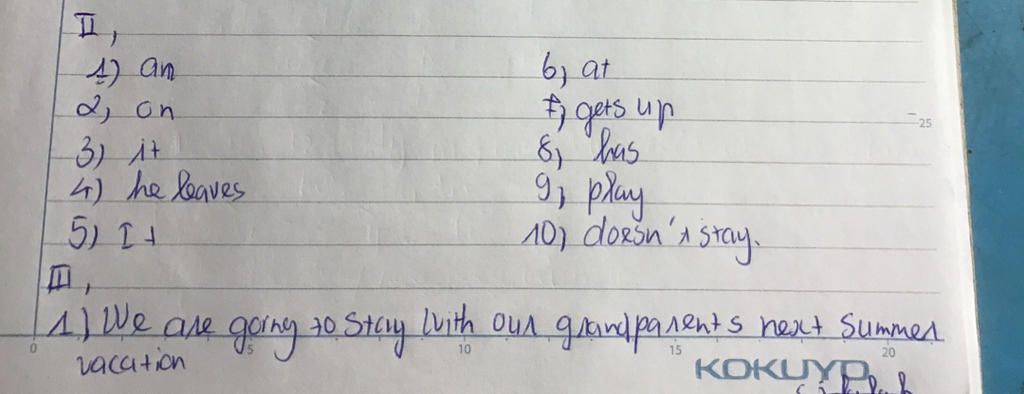 II,
1) an
2, on
3) it
4) he leaves
5) It
6, at
7, gets up
8, has
9, play
10, doesn't stay.
III,
1) We are going to stay with our grandparents next summer
vacation
25
0 5 10 15 20
KOKUYO